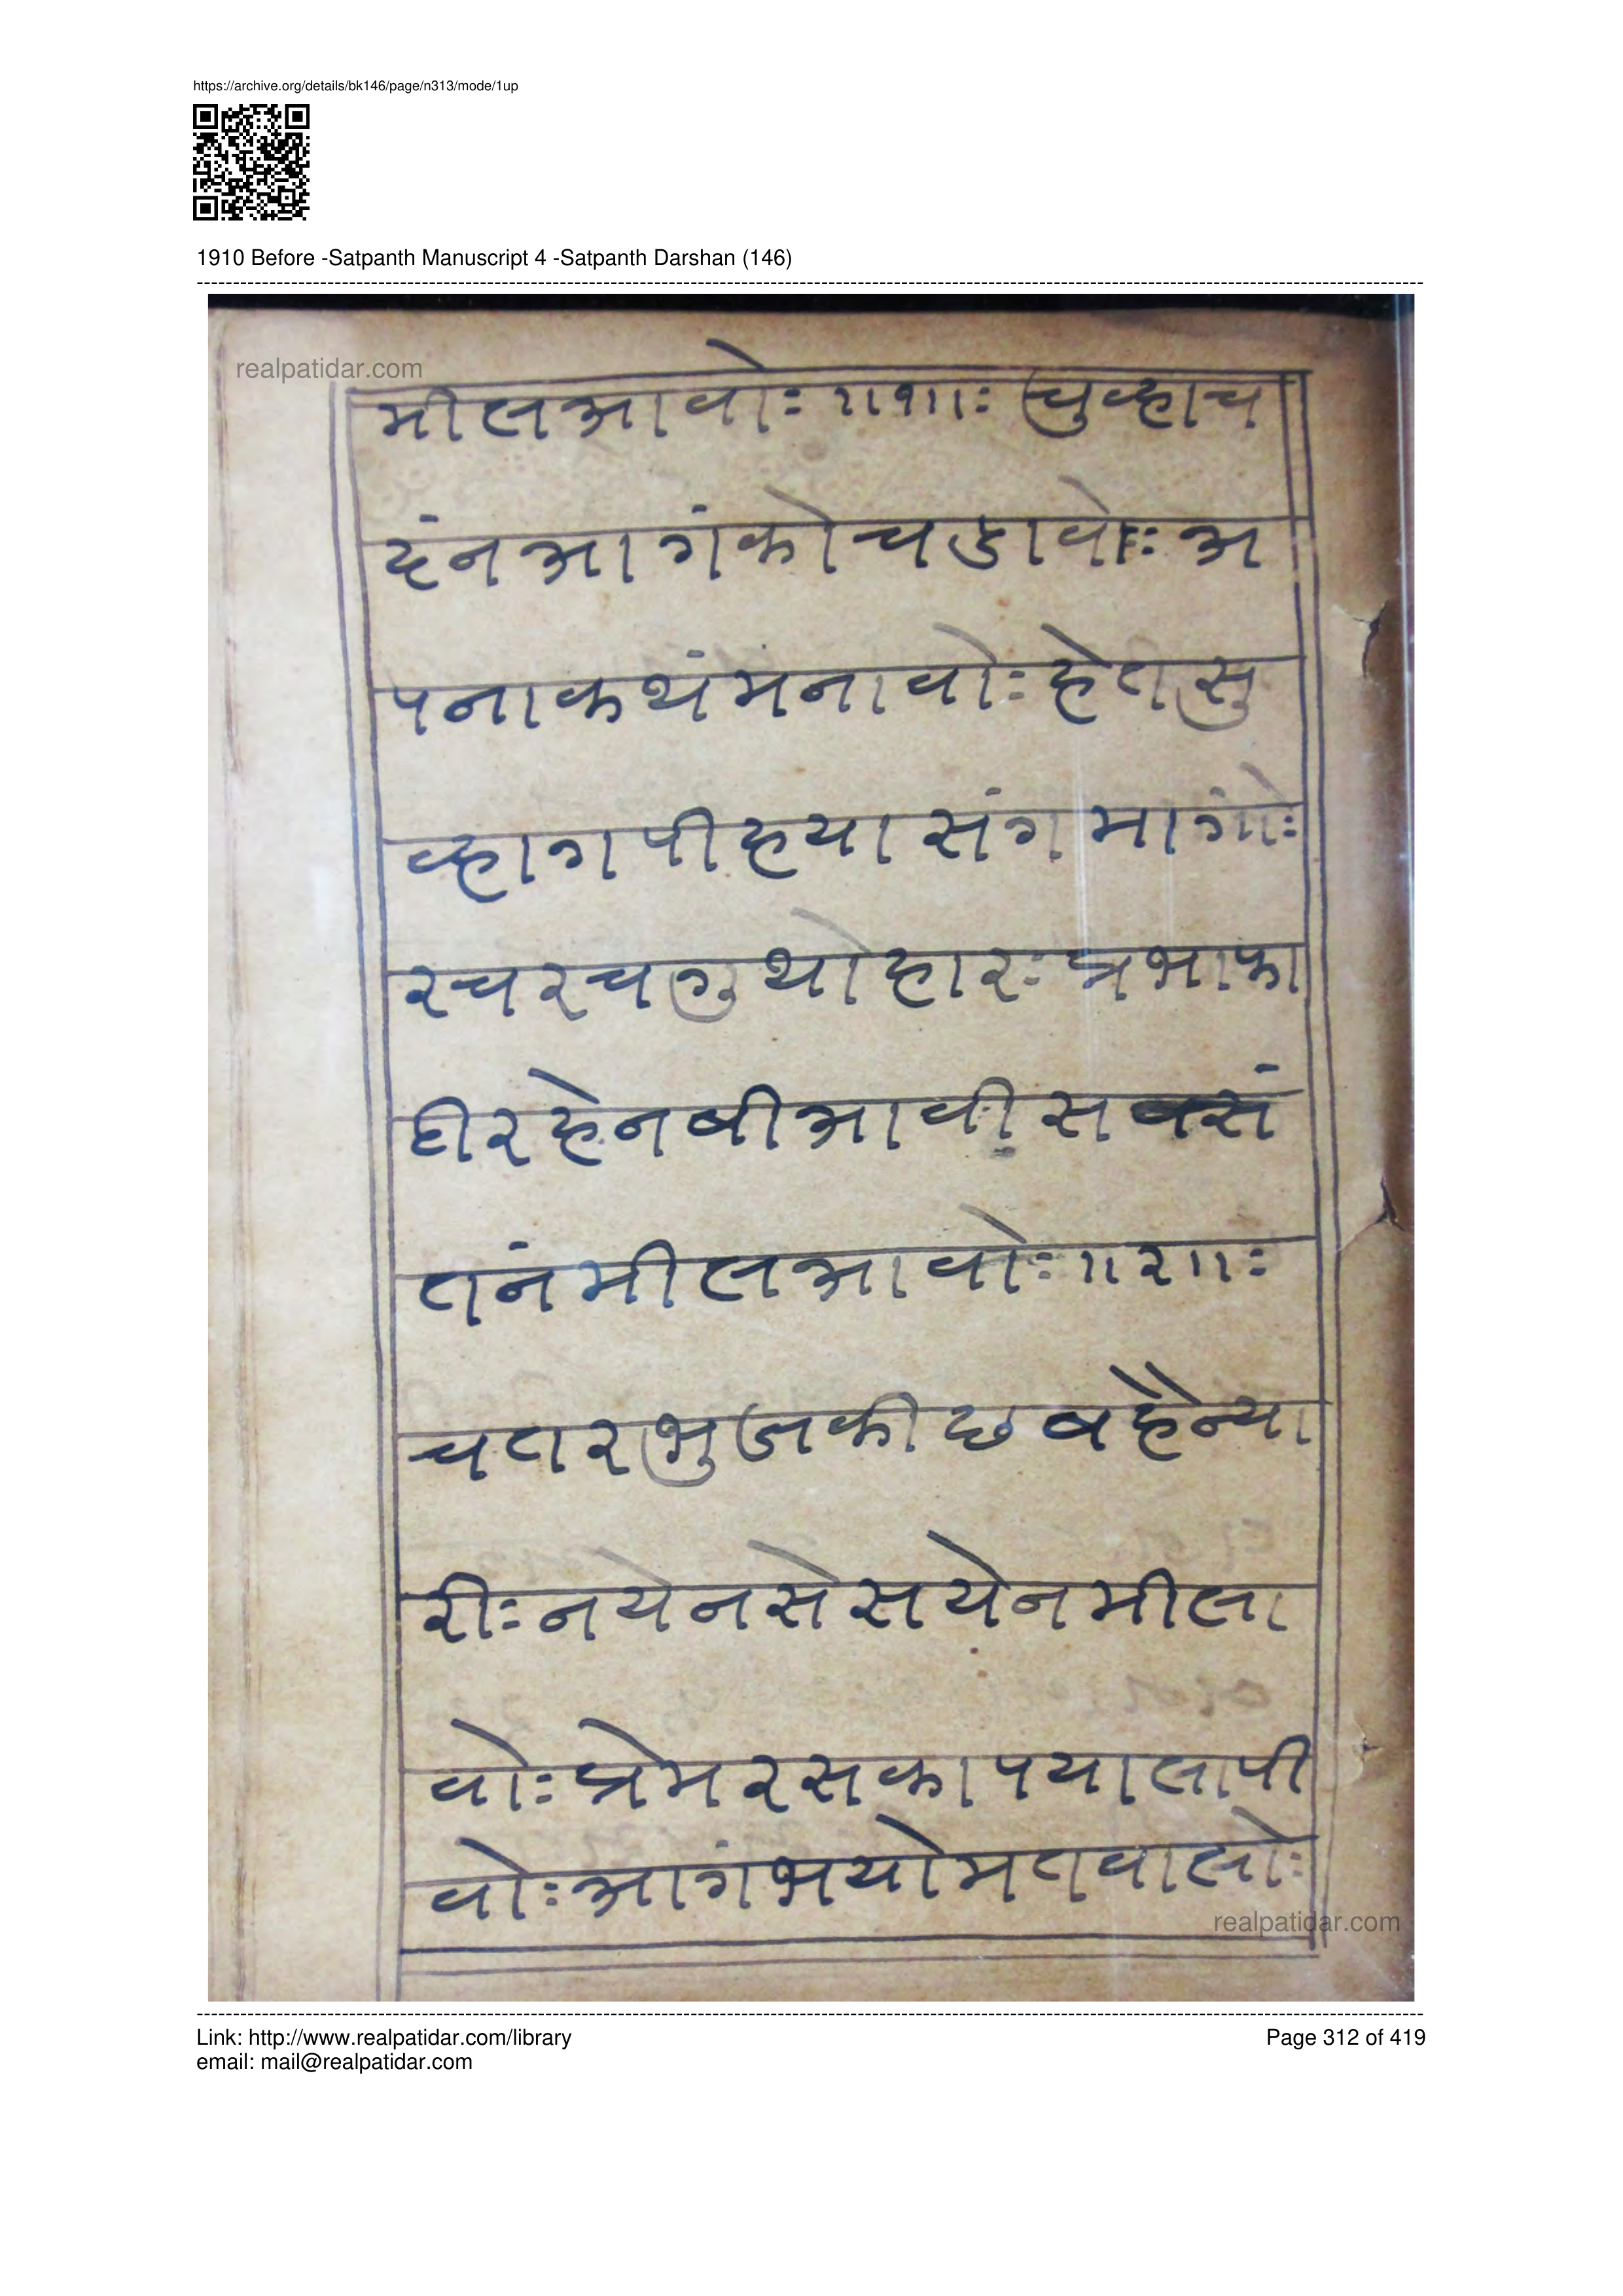 https://archive.org/details/bk146/page/n313/mode/1up
1910 Before -Satpanth Manuscript 4 -Satpanth Darshan (146)
realpatidar.com
मीलआवोः ॥१॥ः चुव्हाच
दंनआगंकोचडावोः अ
पनाकथंमनावोः हेतसु
व्हागपीहयासंगमागोंः
रचरचगुथोहारः प्रभाका
हीरहेनबीआवीसबसं
तनंमीलआवोः ॥२॥ः
चतरभुजकीछबहैन्या
रीः नयेनसेसयेनमीला
वोः प्रेमरसकापयालापी
वोः आगंभयोमतवालोः
realpatidar.com
Link: http://www.realpatidar.com/library
Page 312 of 419
email: mail@realpatidar.com